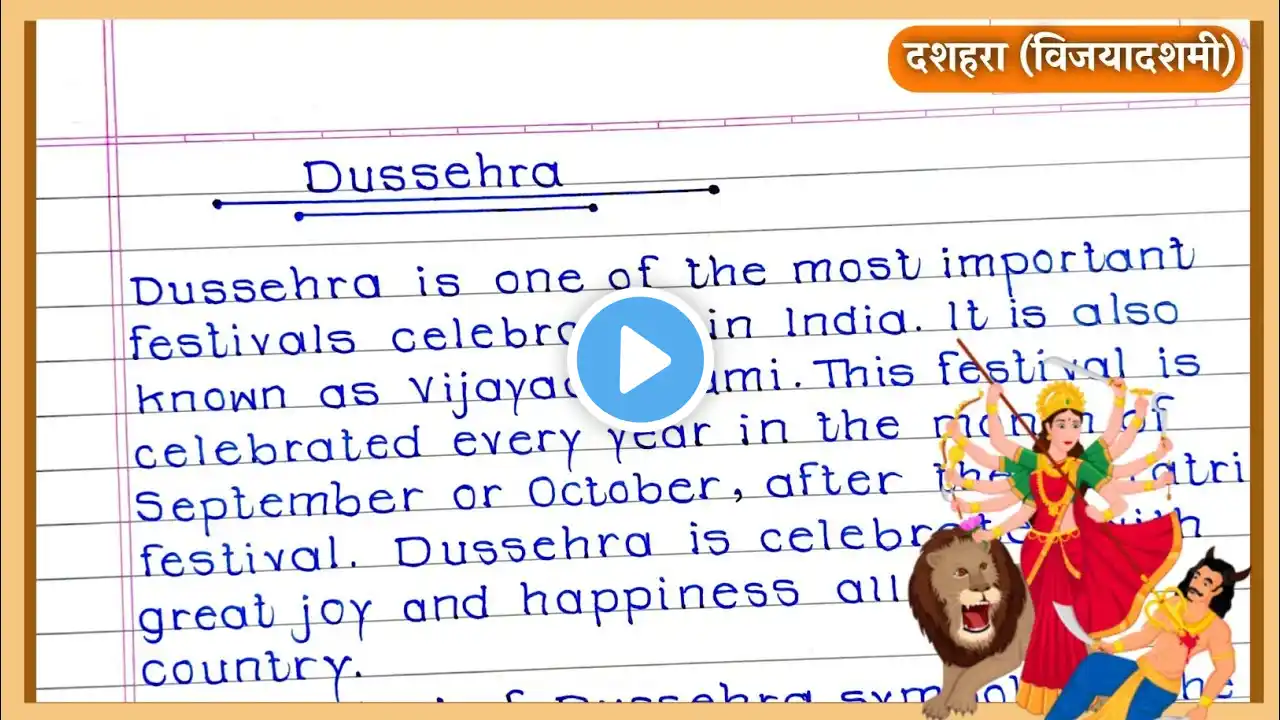 दशहरा (विजयादशमी)
Dussehra
Dussehra is one of the most important
festivals in India. It is also
known as This festival is
celebrated every year in the of
September or October, after the
festival. Dussehra is celebrated with
great joy and happiness all
country.
of Dussehra